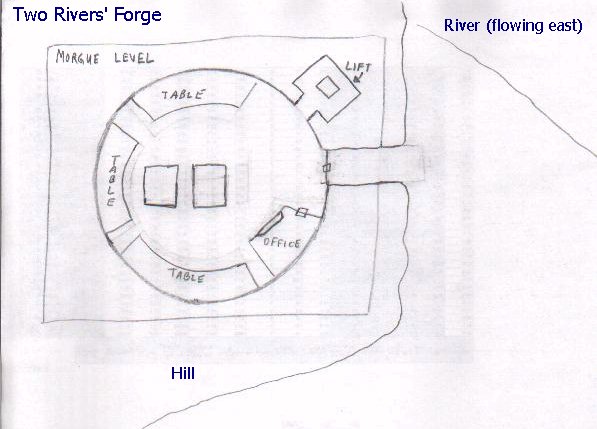 Two Rivers' Forge
River (flowing east)
MORGUE LEVEL
LIFT
TABLE
TABLE
OFFICE
TABLE
Hill